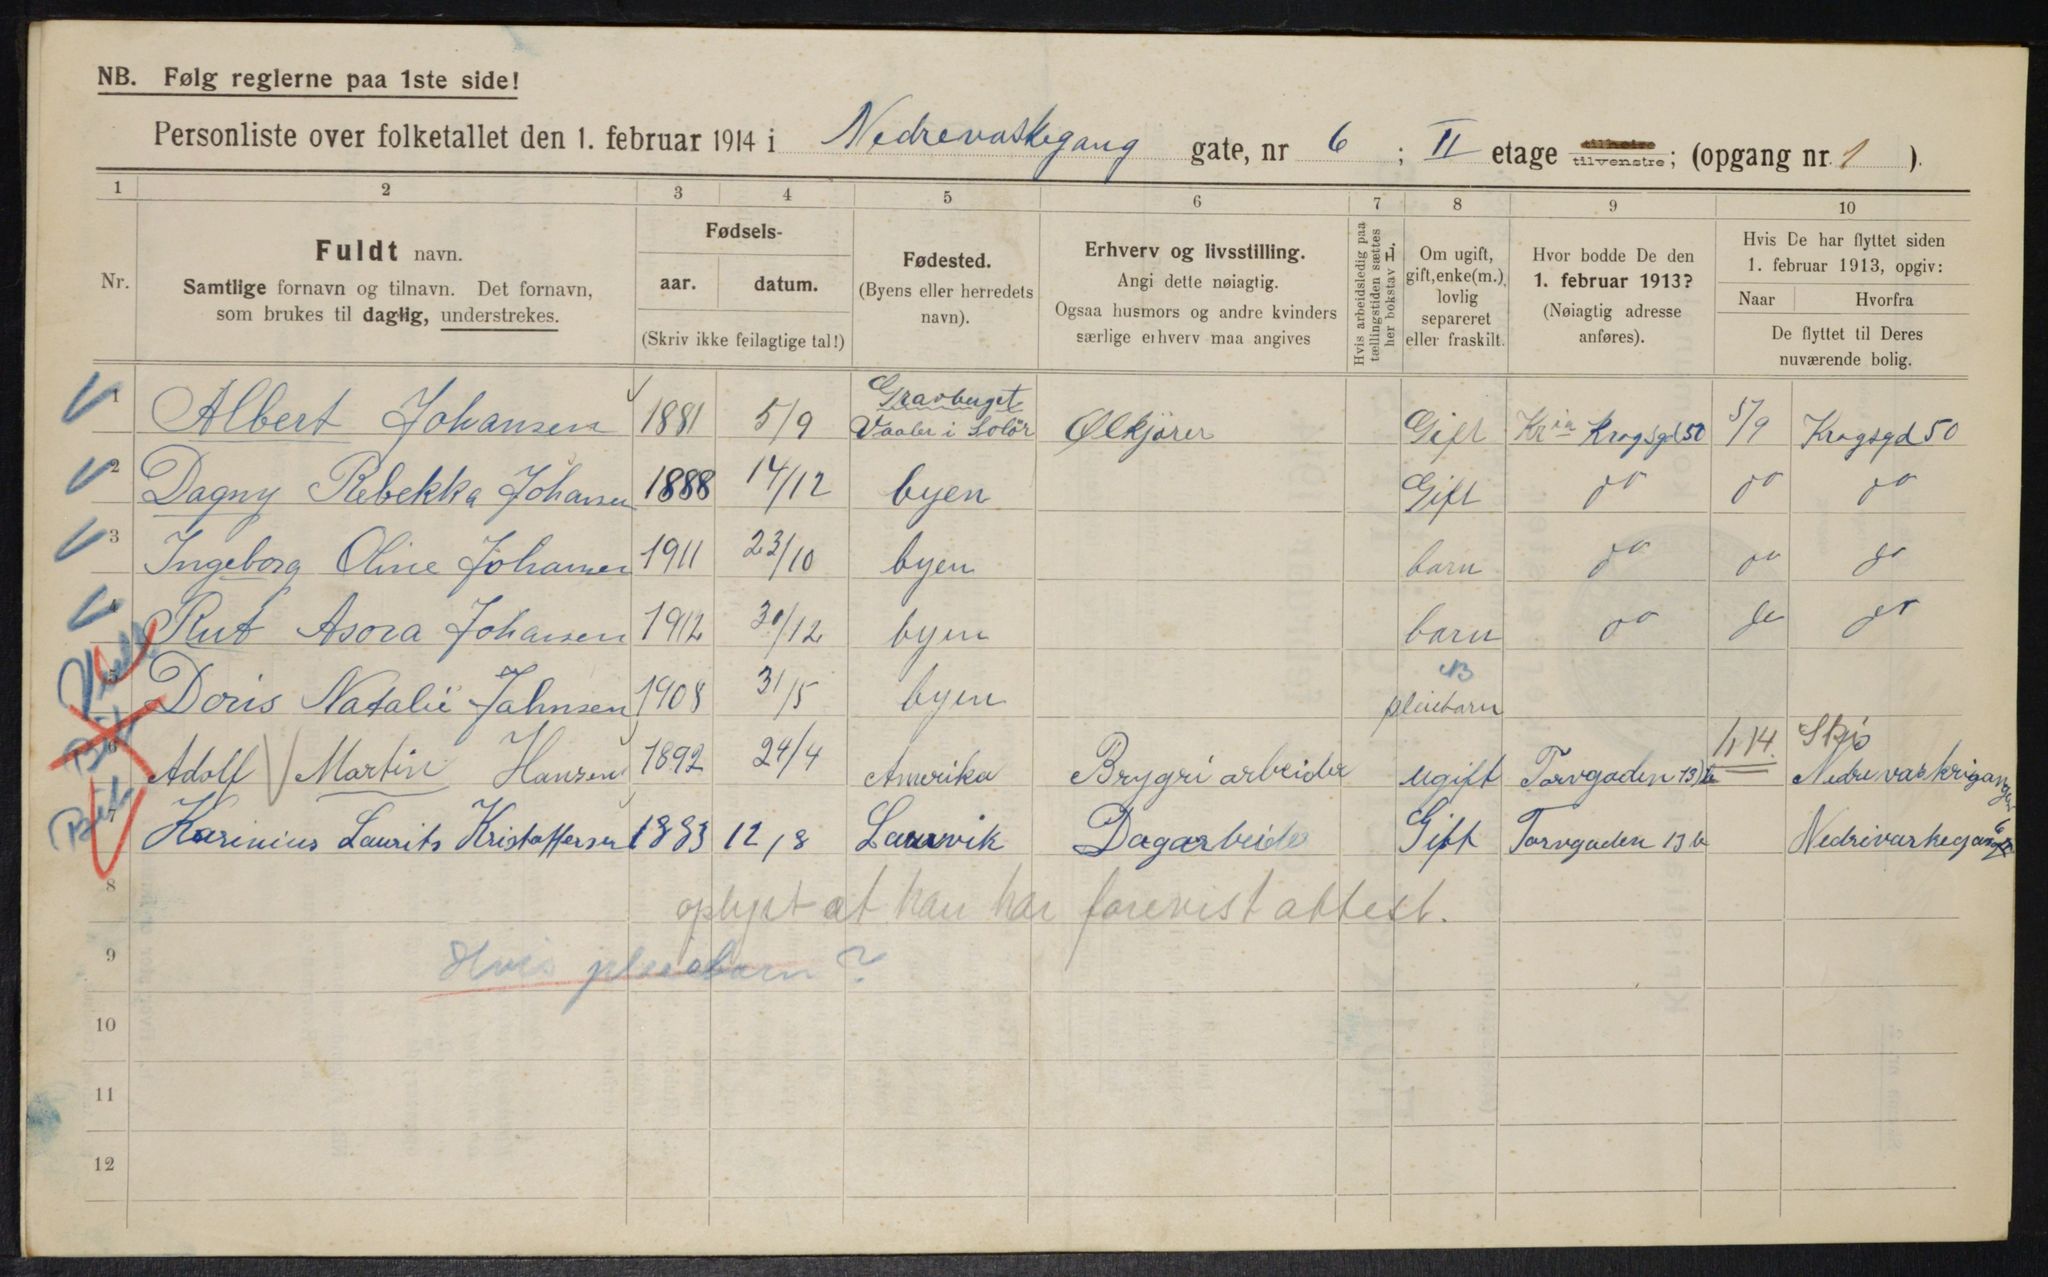 NB. Følg reglerne paa 1ste side!
Personliste over folketallet den 1. februar 1914 i Nedrevaskegang gate, nr 6 ; II etage tilhøire tilvenstre; (opgang nr. 1 ).
1 2 3 4 5 6 7 8 9 10
Nr.
Fuldt navn.
Samtlige fornavn og tilnavn. Det fornavn,
som brukes til daglig, understrekes.
Fødsels-
aar. datum.
(Skriv ikke feilagtige tal!)
Fødested.
(Byens eller herredets
navn).
Erhverv og livsstilling.
Angi dette nøiagtig.
Ogsaa husmors og andre kvinders
særlige erhverv maa angives
Hvis arbeidsledig paa
tællingstiden sættes
her bokstav L.
Om ugift,
gift, enke(m.),
lovlig
separeret
eller fraskilt.
Hvor bodde De den
1. februar 1913?
(Nøiagtig adresse
anføres).
Hvis De har flyttet siden
1. februar 1913, opgiv:
Naar Hvorfra
De flyttet til Deres
nuværende bolig.
1 Albert Johansen 1881 5/9 Gravberget Vaaler i Solör Ølkjører Gift Kria Krogsgd 50 5/9 Krogsgd 50
2 Dagny Rebekka Johansen 1888 14/12 byen Gift do do do
3 Ingeborg Oline Johansen 1911 23/10 byen barn do do do
4 Rut Asora Johansen 1912 30/12 byen barn do do do
NB
5 Doris Natalie Jahnsen 1908 31/5 byen pleiebarn
6 Adolf Martin Hansen 1892 24/4 Amerika Brygri arbeider ugift Torvgaden 13 b 1/1 14. Nedrevaskrigangen 6
7 Karinius Laurits Kristoffersen 1883 12/8 Laurvik Dagarbeider Gift Torvgaden 13 b Nedrivarkegang
8
oplyst at han har forevist attest.
9
Hvis pleiebarn?
10
11
12